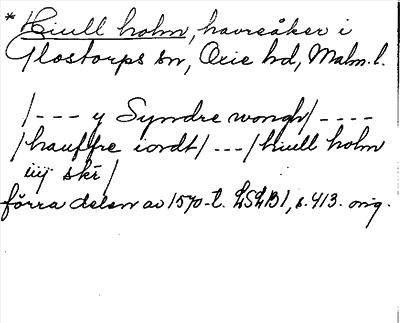 * Hiull holm, havreåker i
Glostorps sn, Oxie hd, Malm. l.
/--- y Syndre wongh/----
/hauffre iordt/---/hiull holm
iiij skr/
förra delen av 1570-t. LSLB1, s. 413. orig.